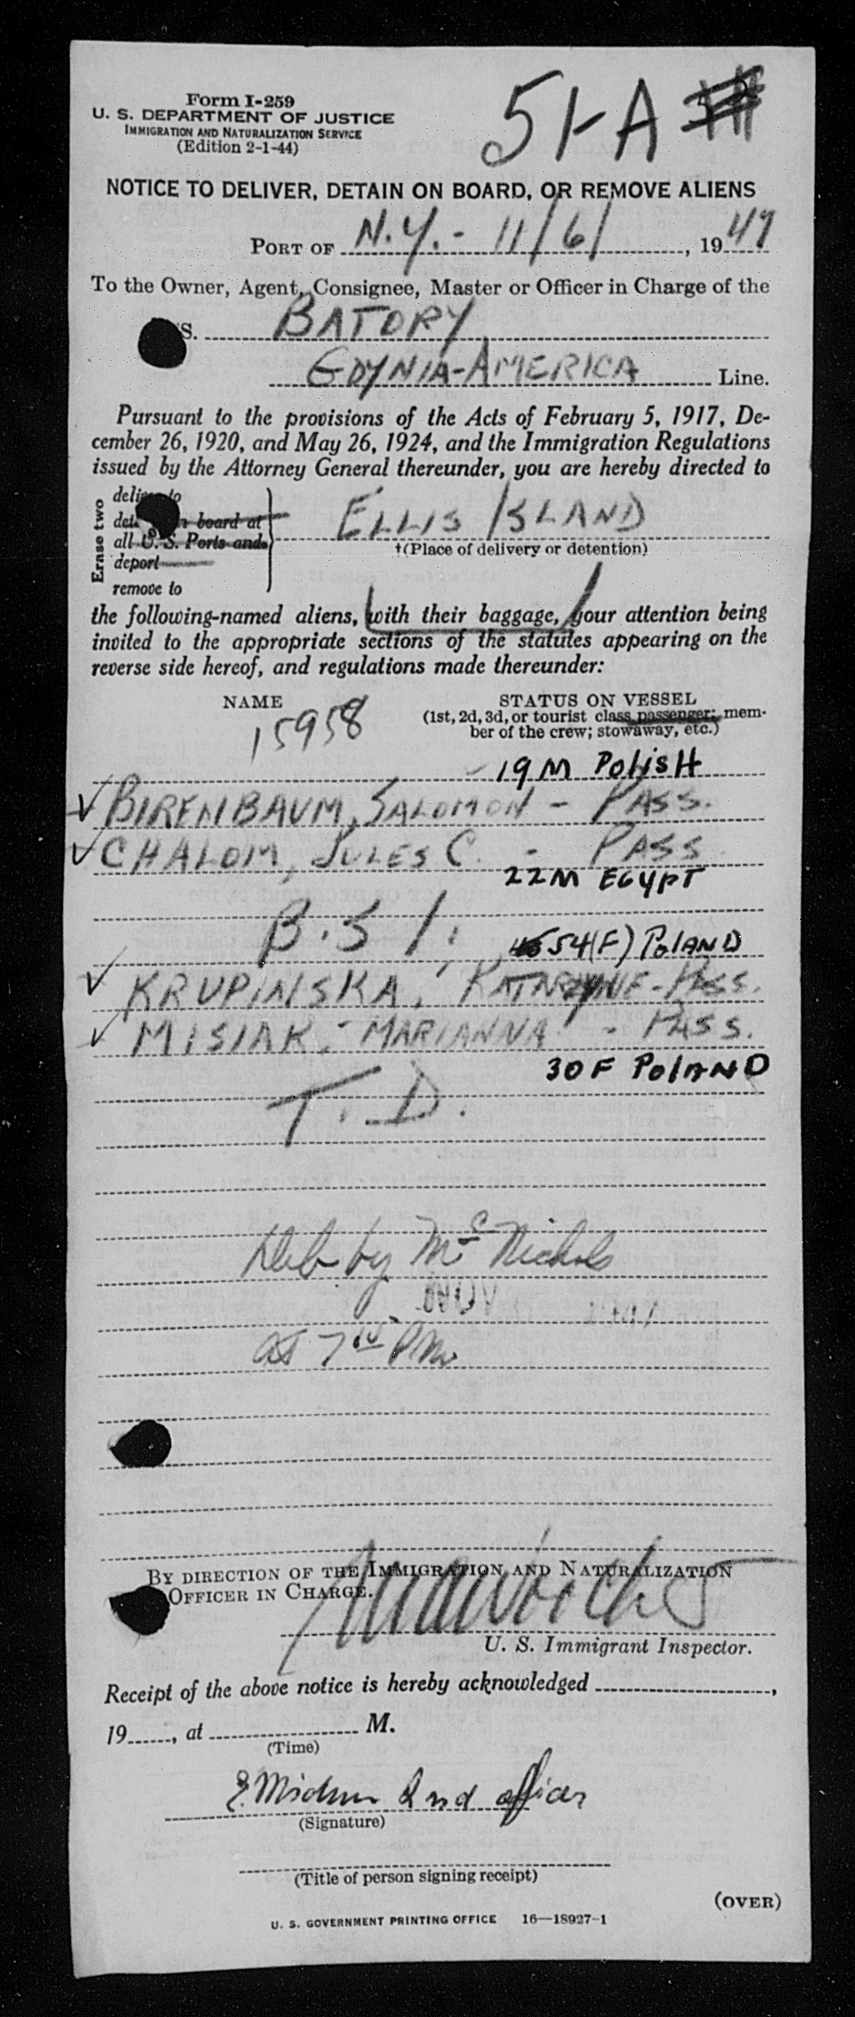 Form I-259
U. S. DEPARTMENT OF JUSTICE
IMMIGRATION AND NATURALIZATION SERVICE
(Edition 2-1-44)
51-A
NOTICE TO DELIVER, DETAIN ON BOARD, OR REMOVE ALIENS
PORT OF N.Y. - 11/6/, 1947
To the Owner, Agent, Consignee, Master or Officer in Charge of the
S. BATORY
GDYNIA-AMERICA Line.
Pursuant to the provisions of the Acts of February 5, 1917, De-
cember 26, 1920, and May 26, 1924, and the Immigration Regulations
issued by the Attorney General thereunder, you are hereby directed to
Erase two
deliver to
detain on board at
all U. S. Ports and
deport
remove to
ELLIS ISLAND
†(Place of delivery or detention)
the following-named aliens, with their baggage, your attention being
invited to the appropriate sections of the statutes appearing on the
reverse side hereof, and regulations made thereunder:
NAME
STATUS ON VESSEL
(1st, 2d, 3d, or tourist class passenger; mem-
ber of the crew; stowaway, etc.)
15958
19 M POLISH
✓ BIRENBAUM, SALOMON - PASS.
✓ CHALOM, JULES C. - PASS
22M EGYPT
B.S.I.
54(F) POLAND
✓ KRUPINSKA, - PASS.
✓ MISIAK, MARIANNA - PASS.
30 F POLAND
T. D.
Deb by McNichols
at 7 10 PM
BY DIRECTION OF THE IMMIGRATION AND NATURALIZATION
OFFICER IN CHARGE.
U. S. Immigrant Inspector.
Receipt of the above notice is hereby acknowledged ,
19 , at M.
(Time)
2nd officer
(Signature)
(Title of person signing receipt)
(OVER)
U. S. GOVERNMENT PRINTING OFFICE 16—18927-1